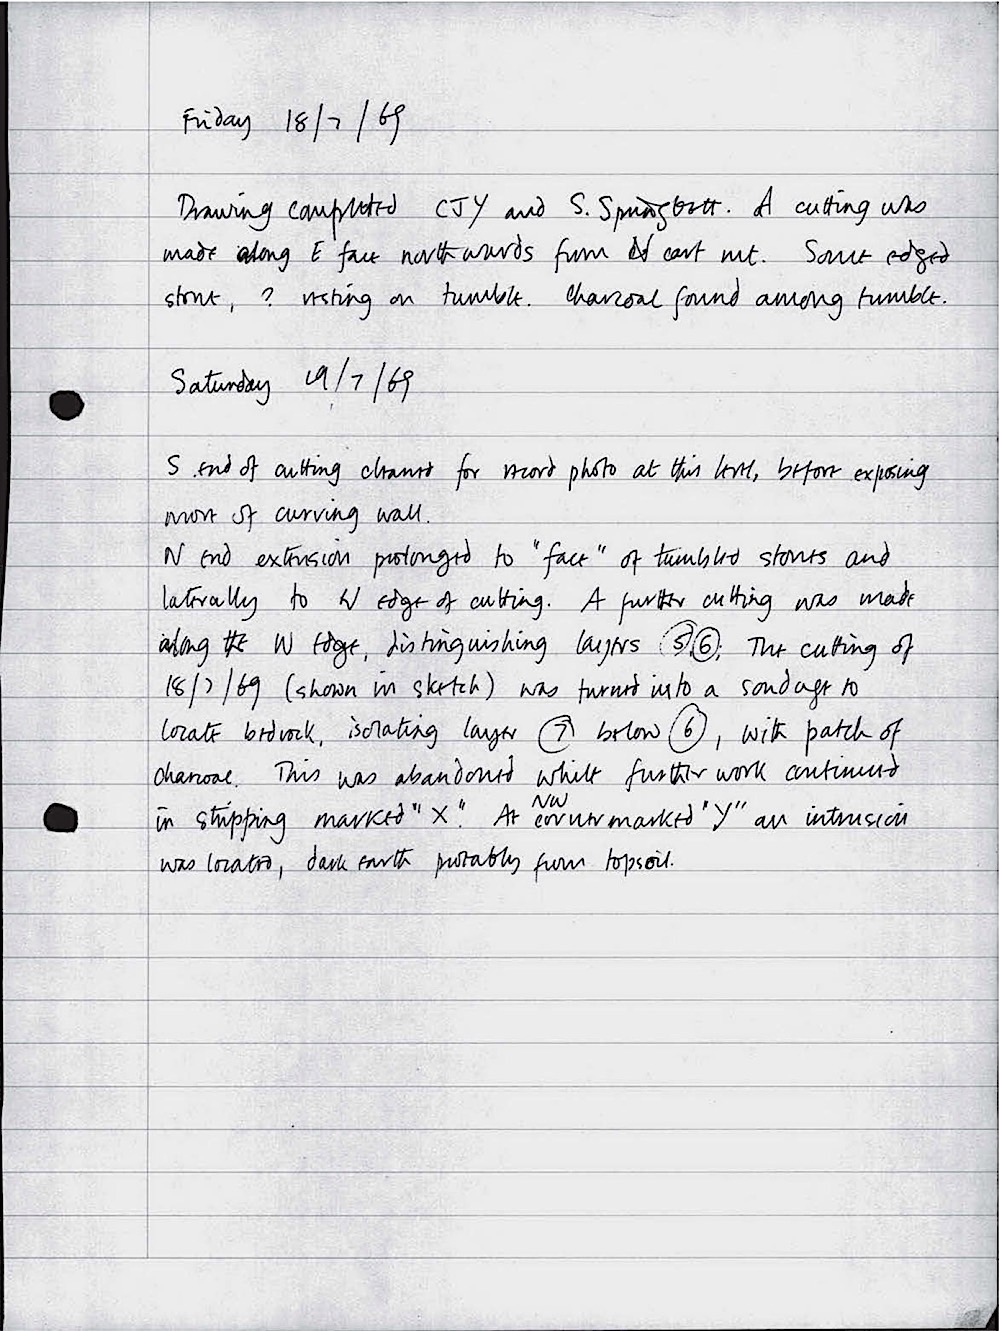 Friday 18/7/69
Drawing completed CJY and S. Springbett. A cutting was
made along E face northwards from N cart rut. Some edged
stone, ? resting on tumble. Charcoal found among tumble.
Saturday 19/7/69
S end of cutting cleaned for record photo at this level, before exposing
more of curving wall.
N end extension prolonged to "face" of tumbled stones and
laterally to W edge of cutting. A further cutting was made
along the W edge, distinguishing layers 5 6. The cutting of
18/7/69 (shown in sketch) was turned into a sondage to
locate bedrock, isolating layer 7 below 6, with patch of
charcoal. This was abandoned while further work continued
in stripping marked "X". At NW corner marked "Y" an intrusion
was located, dark earth probably from topsoil.